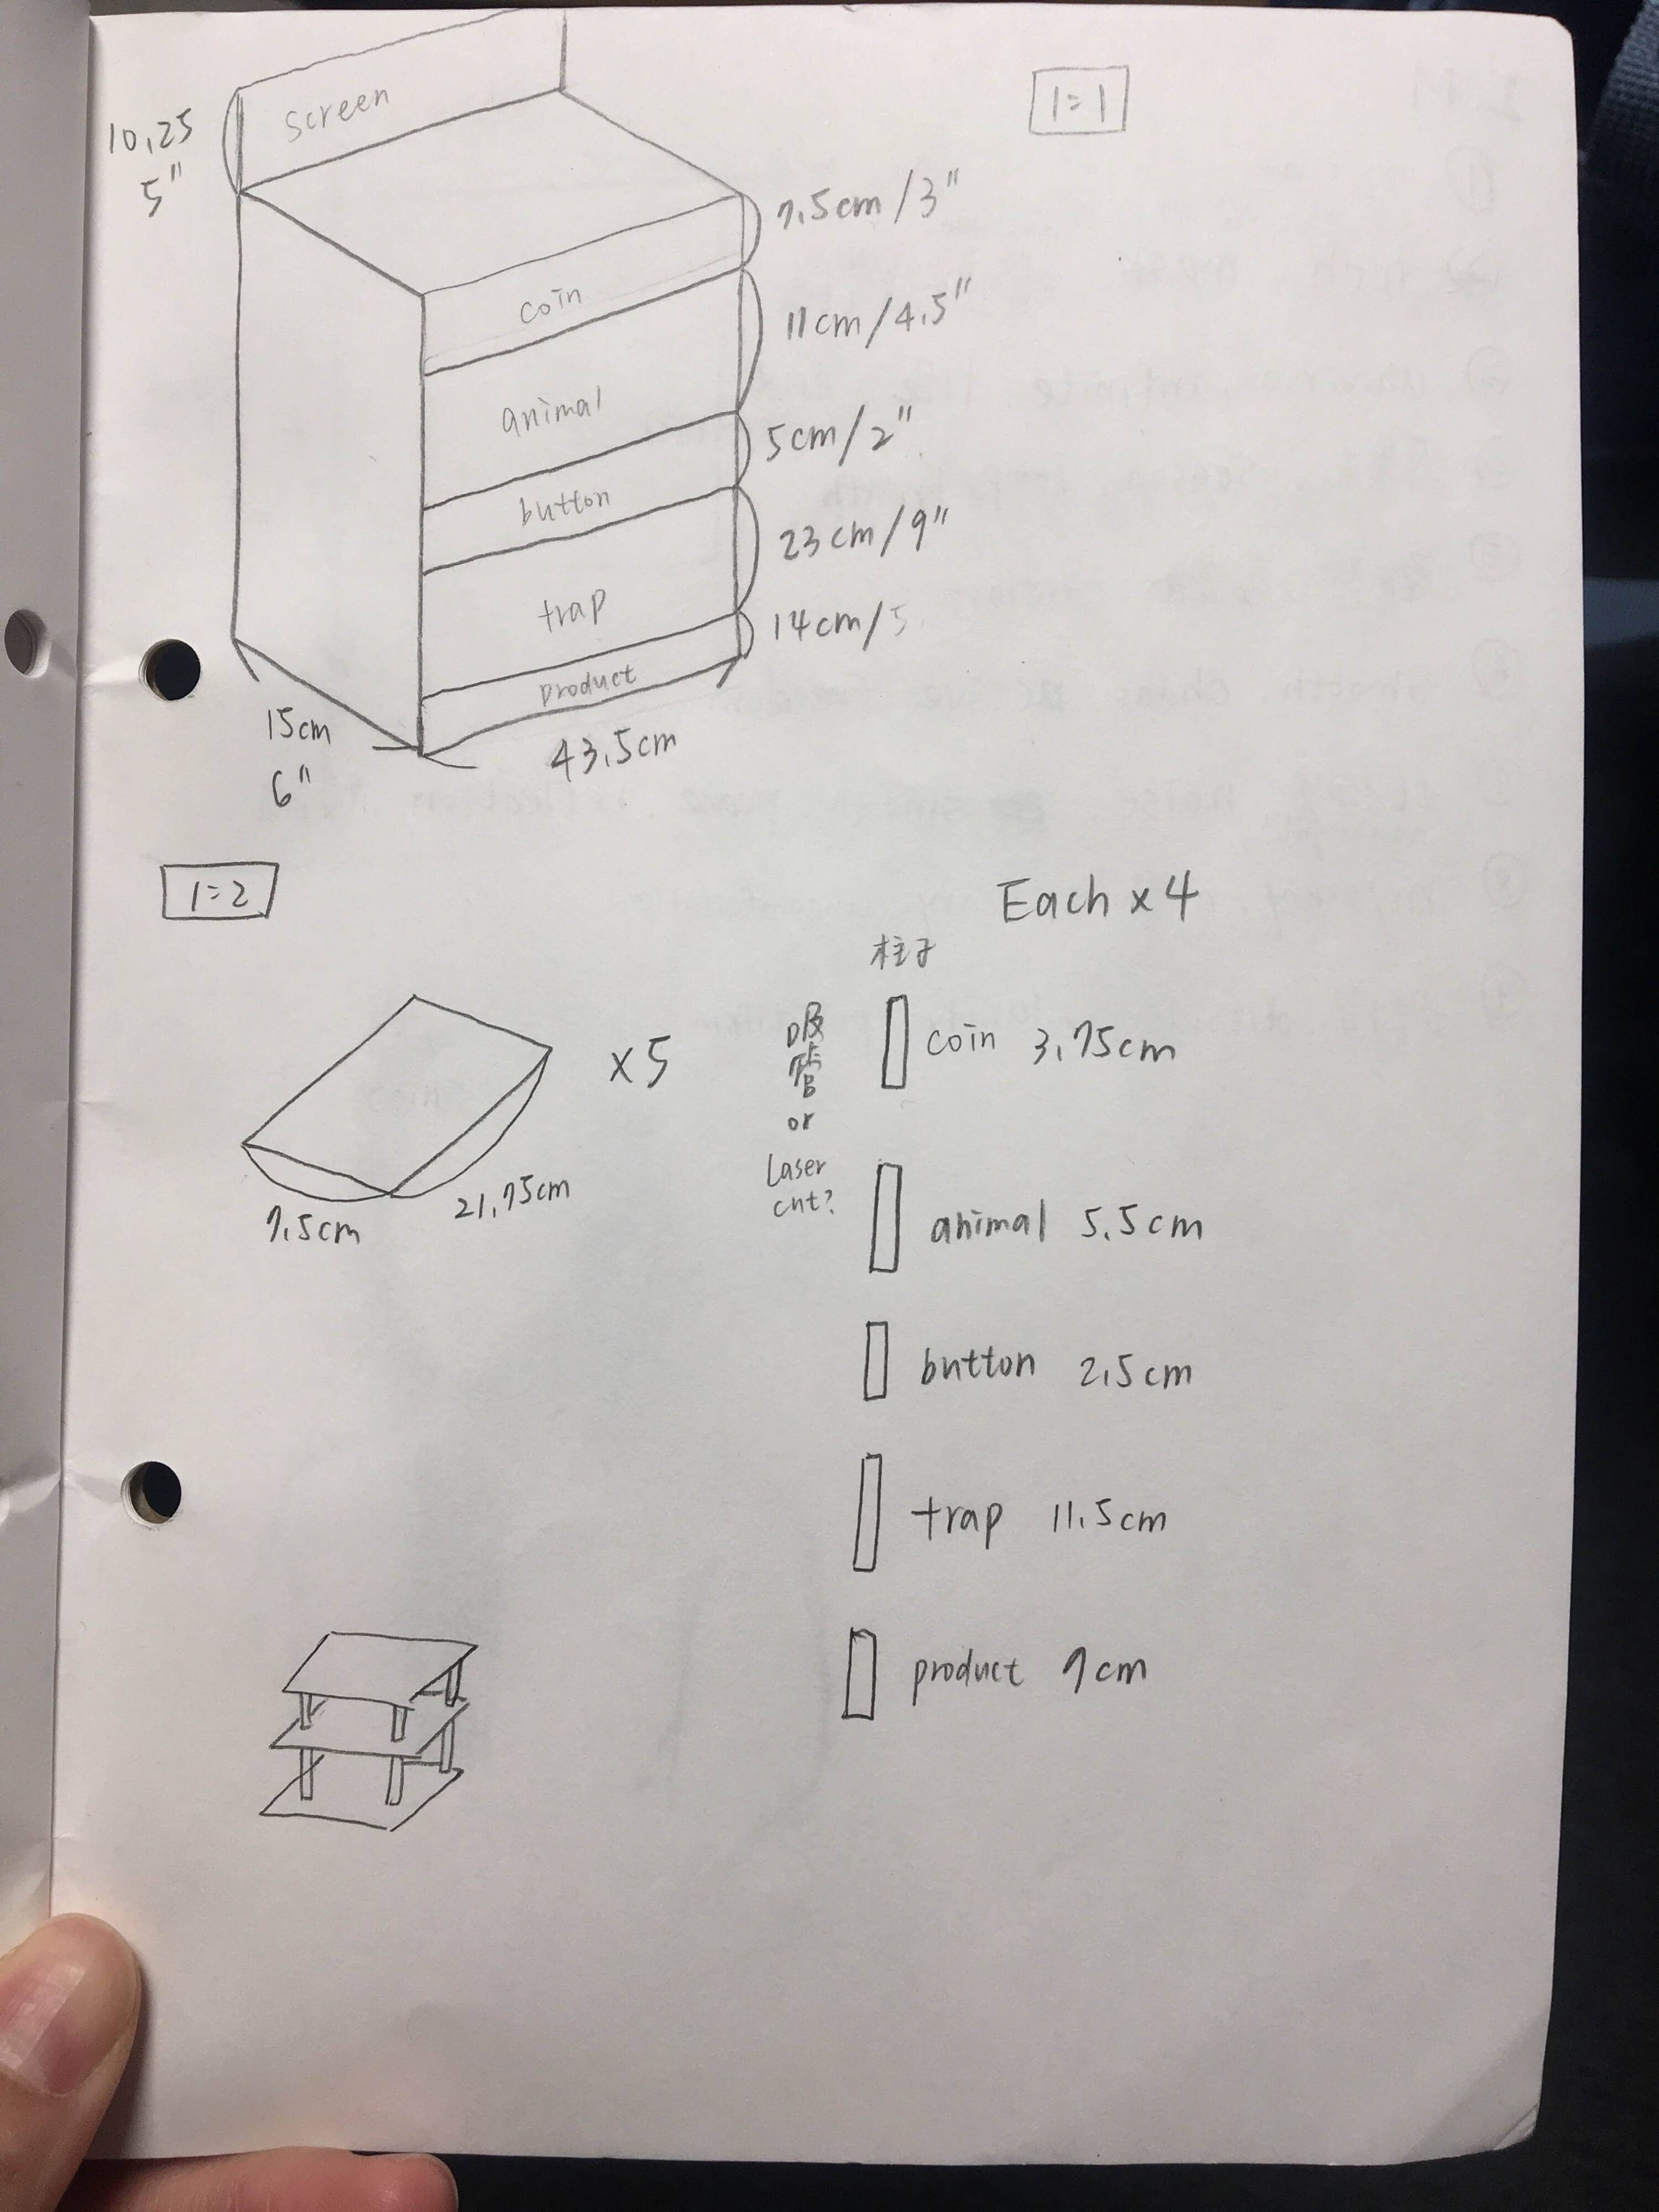 1:1
screen
10.25
5"
7.5cm/3"
coin
11cm/4.5"
animal
5cm/2"
button
23cm/9"
trap
14cm/5
product
15cm
6"
43.5cm
1:2
Each x 4
柱子
x5
吸管
or
Laser
cut?
coin 3.75cm
7.5cm
21.75cm
animal 5.5cm
button 2.5cm
trap 11.5cm
product 7cm